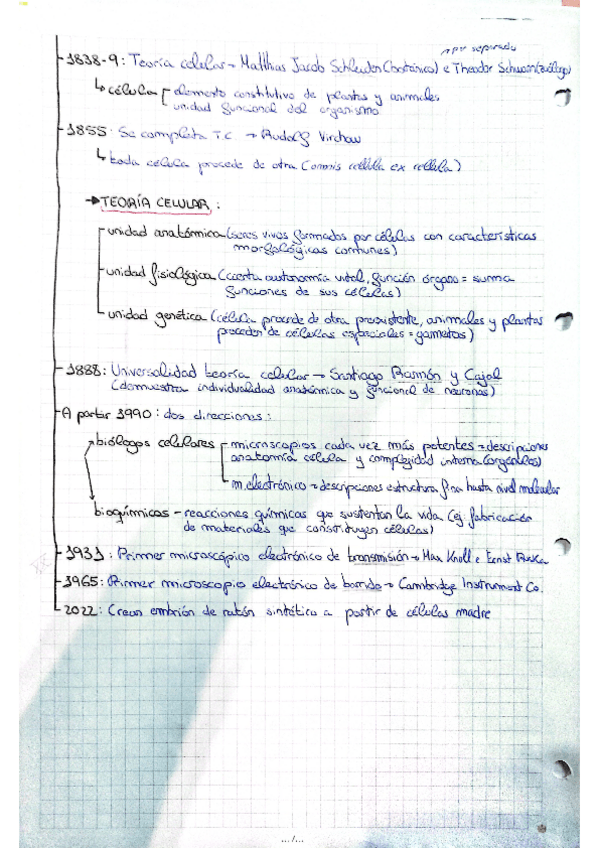 por separado
1838-9: Teoría celular → Matthias Jacob Schleiden (botánico) e Theodor Schwann (zoólogo)
↳ célula elemento constitutivo de plantas y animales
unidad funcional del organismo
1855: Se completa T.C. → Rudolf Virchow
↳ toda célula procede de otra (omnis cellula ex cellula)
→ TEORÍA CELULAR:
unidad anatómica (seres vivos formados por células con características
morfológicas comunes)
unidad fisiológica (cierta autonomía vital, función órgano = suma
funciones de sus células)
unidad genética (célula procede de otra preexistente, animales y plantas
proceden de células especiales = gametos)
1888: Universalidad teoría celular → Santiago Ramón y Cajal
(demuestra individualidad anatómica y funcional de neuronas)
A partir 1990: dos direcciones:
biólogos celulares microscopios cada vez más potentes = descripciones
anatomía célula y complejidad interna (orgánulos)
m. electrónico → descripciones estructura fina hasta nivel molecular
bioquímicos - reacciones químicas que sustentan la vida (ej fabricación
de materiales que constituyen células)
XX
1931: Primer microscópico electrónico de transmisión → Max Knoll e Ernst Ruska
1965: Primer microscopio electrónico de barrido → Cambridge Instrument Co.
2022: Crean embrión de ratón sintético a partir de células madre
.../...